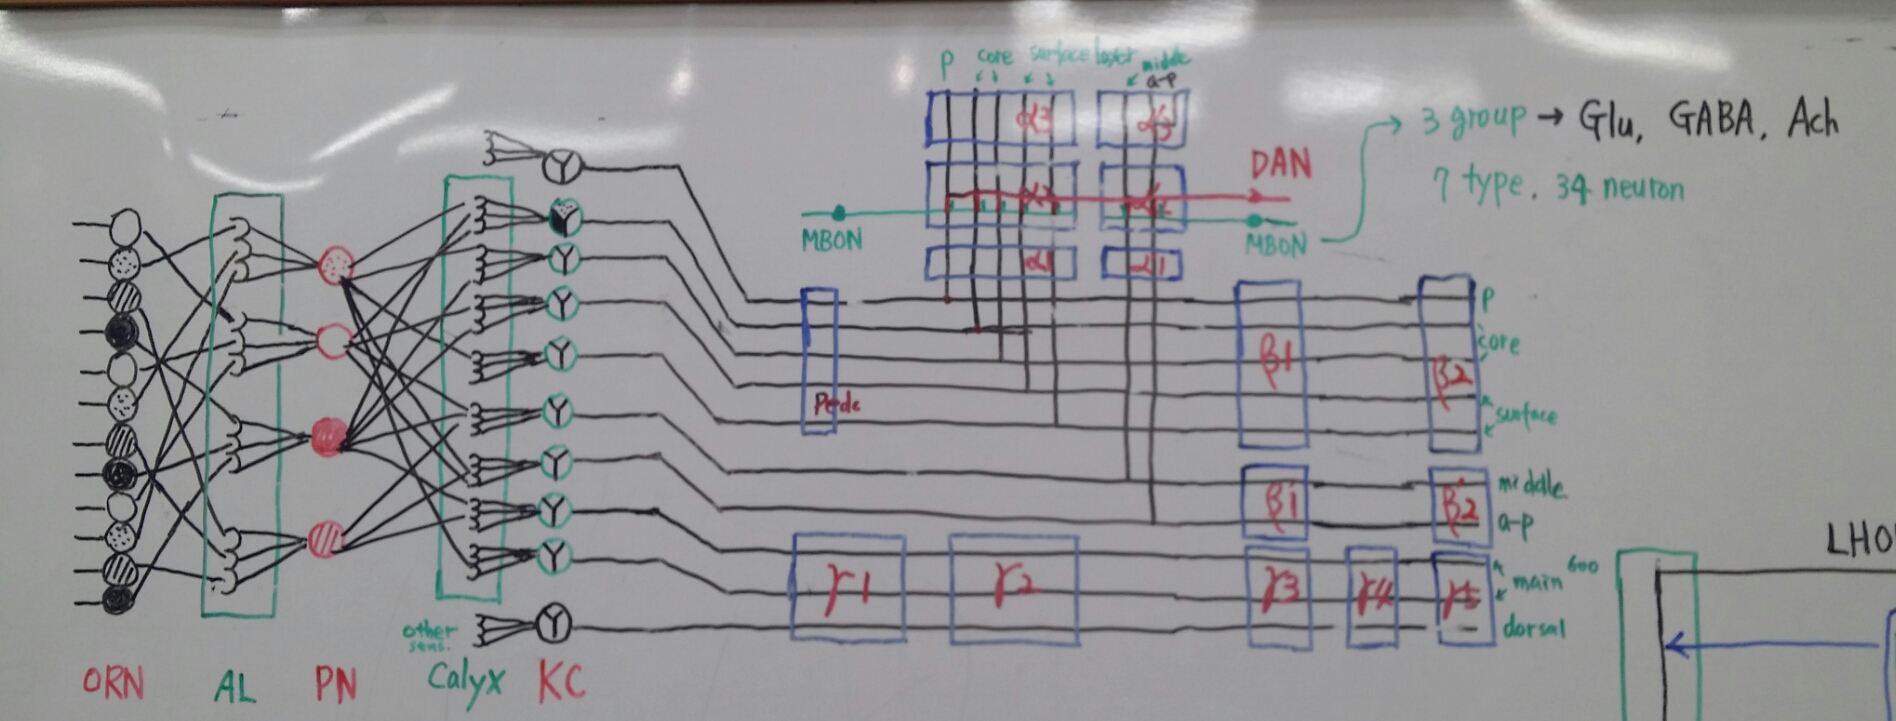 P core surface layer middle
a-p
α3
α'3
3 group → Glu, GABA, Ach
7 type, 34 neuron
DAN
α2
MBON
MBON
α1
α'1
Pedc
β1
β2
P
core
surface
β'1
β'2
middle
a-p
γ1
γ2
γ3
γ4
γ5
main 600
dorsal
other
sens.
ORN
AL
PN
Calyx
KC